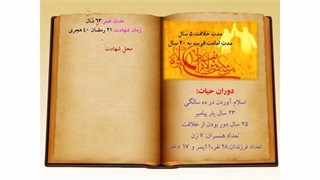 مدت عمر:۶۳ سال
زمان شهادت:۲۱ رمضان ۴۰ هجری
محل شهادت
مدت خلافت:۵ سال
مدت امامت:قریب به ۳۰ سال
دوران حیات:
اسلام آوردن در ده سالگی
۲۳ سال یار پیامبر
۲۵ سال دور بودن از خلافت
تعداد همسران:۷ زن
تعداد فرزندان:۲۸ نفر،۱۱پسر و ۱۷ دختر